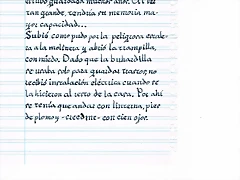 el tubo guardada muchos años. Al ser
tan grande, tendría en memoria ma-
yor capacidad...
Subió como pudo por la peligrosa escale-
ra a la molinera y abrió la trampilla,
con miedo. Dado que la buhardilla
se usaba solo para guardar trastos, no
recibió instalación eléctrica cuando se
la hicieron al resto de la casa. Por ahí
se tenía que andar con linterna, pies
de plomo y -creedme- con cien ojos.